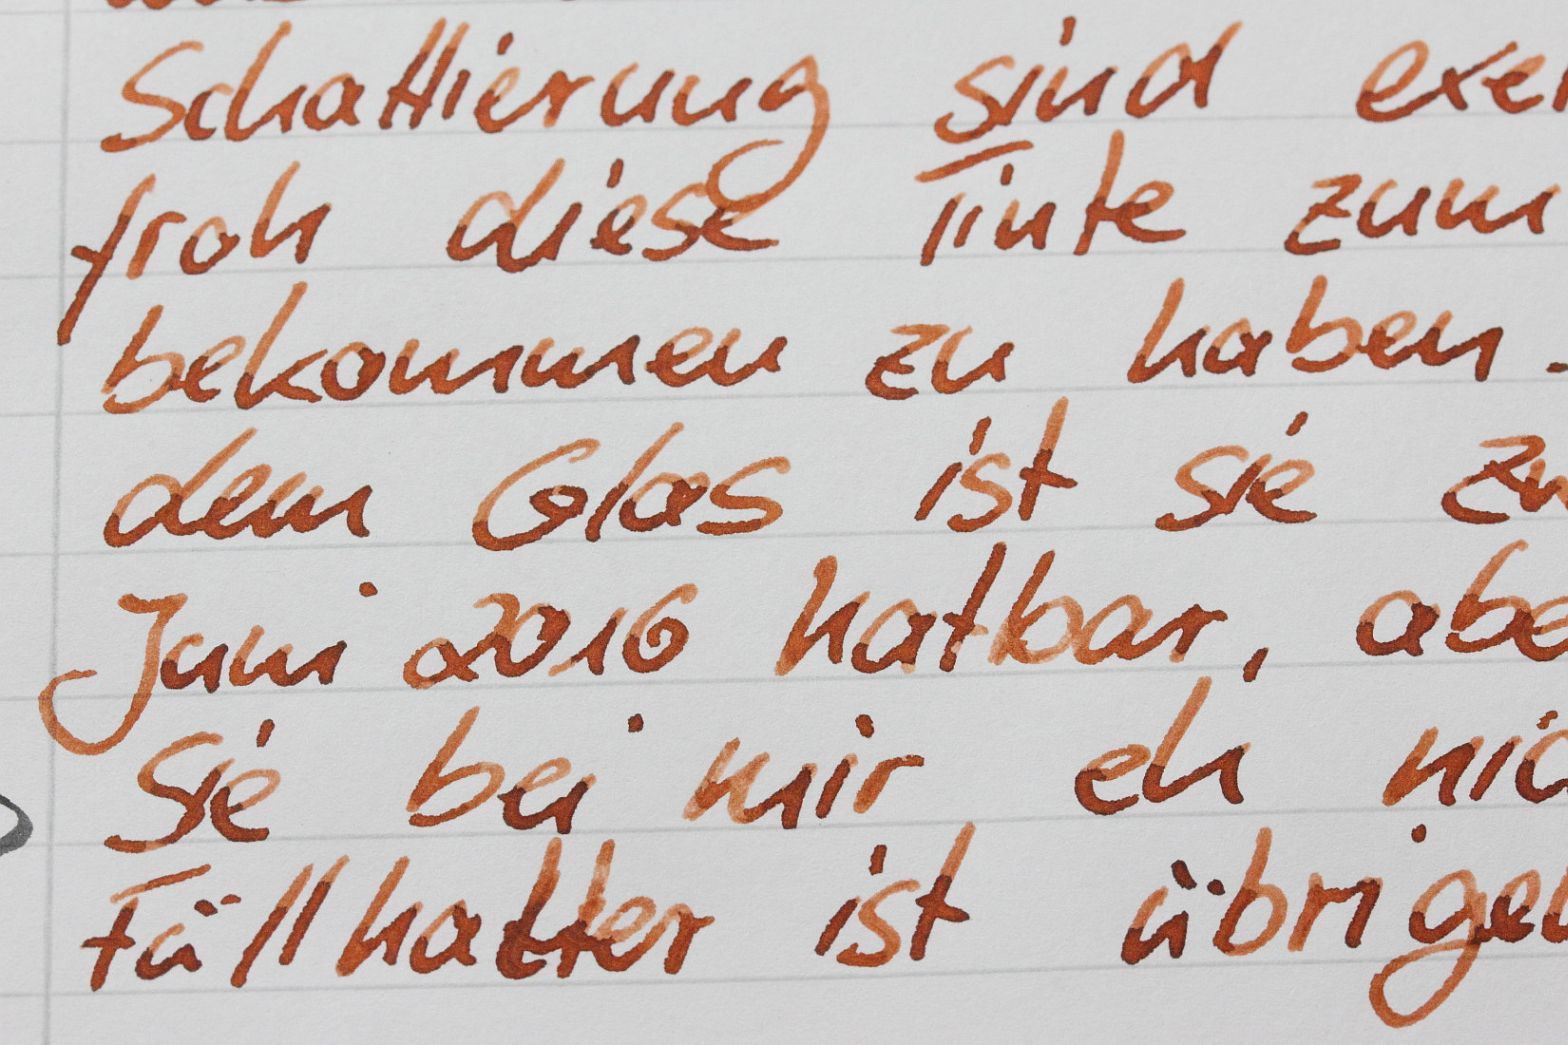 Schattierung sind exel
froh diese Tinte zum
bekommen zu haben.
dem Glas ist sie zu
Juni 2016 hatbar, abe
sie bei mir eh nic
Füllhatter ist übrigen